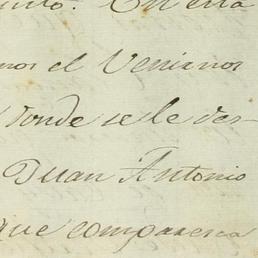 En esta
nos el Venimos
donde se le des-
Juan Antonio
que comparesca